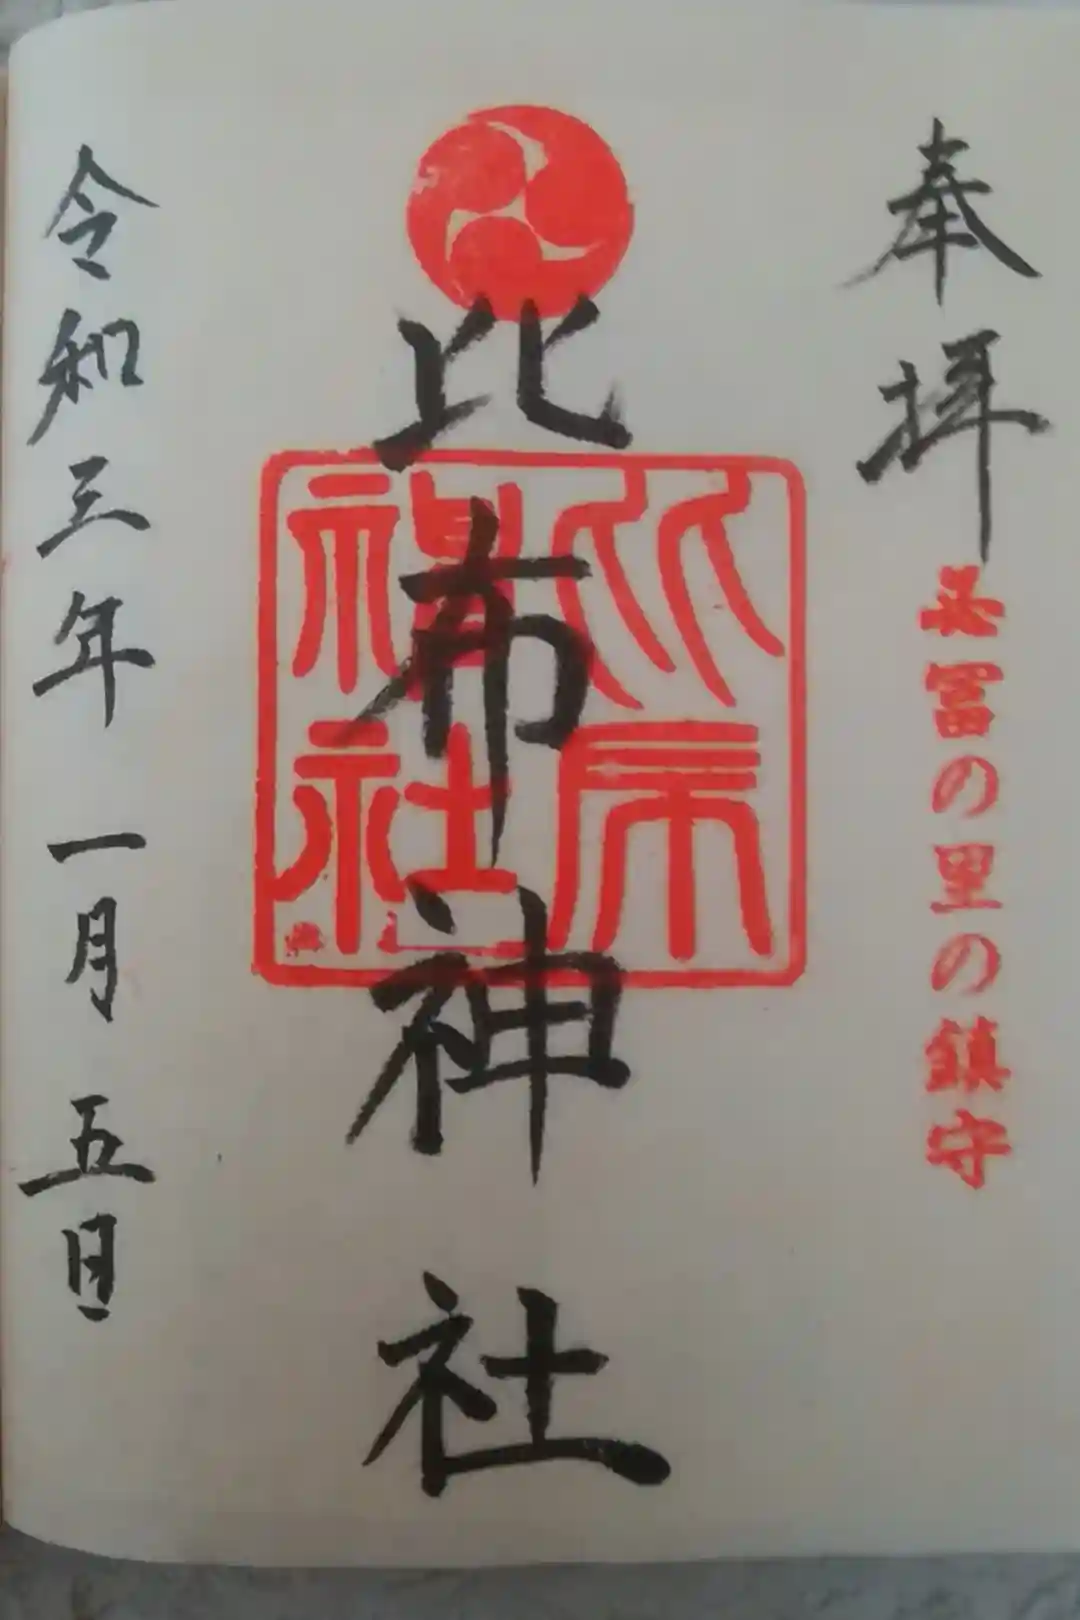 奉拝
冨の里の鎮守
比布神社
比布
神社
令和三年一月五日